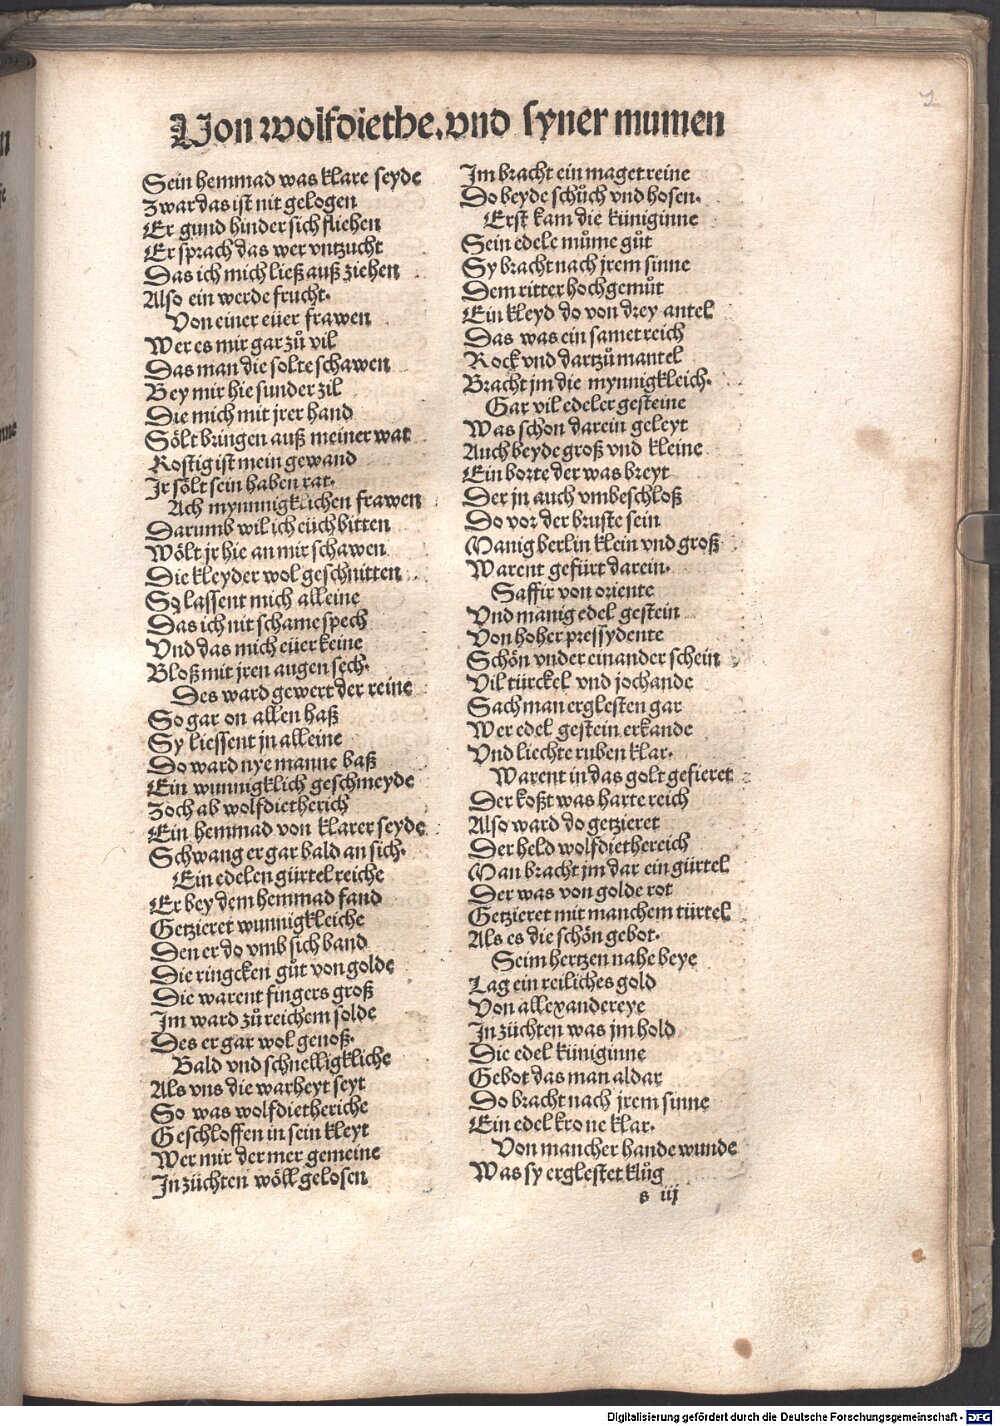 Von wolfdiethe. vnd syner mumen
Sein hemmad was klare seyde
Zwar das ist nit gelogen
Er gund hinder sich fliehen
Er sprach das wer vntzucht
Das ich mich ließ auß ziehen
Also ein werde frucht.
Von einer eüer frawen
Wer es mir gar zů vil
Das man die solte schawen
Bey mir hie sunder zil
Die mich mit jrer hand
Sölt bringen auß meiner wat
Rostig ist mein gewand
Jr sölt sein haben rat.
Ach mynnigklichen frawen
Darumb wil ich eüch bitten
Wölt jr hie an mir schawen
Die kleyder wol geschnitten
So lassent mich alleine
Das ich nit schame spech
Vnd das mich eüer keine
Bloß mit jren augen sech.
Des ward gewert der reine
So gar on allen haß
Sy liessent jn alleine
Do ward nye manne baß
Ein wunnigklich geschmeyde
Zoch ab wolfdietherich
Ein hemmad von klarer seyde
Schwang er gar bald an sich.
Ein edelen gürtel reiche
Er bey dem hemmad fand
Getzieret wunnigkleiche
Den er do vmb sich band
Die ringcken gůt von golde
Die warent fingers groß
Im ward zů reichem solde
Des er gar wol genoß.
Bald vnd schnelligkliche
Als vns die warheyt seyt
So was wolfdietheriche
Geschloffen in sein kleyt
Wer mir der mer gemeine
In züchten wöll gelosen
Im bracht ein maget reine
Do beyde schůch vnd hosen.
Erst kam die küniginne
Sein edele můme gůt
Sy bracht nach jrem sinne
Dem ritter hochgemůt
Ein kleyd do von drey antel
Das was ein samet reich
Rock vnd dartzů mantel
Bracht jm die mynnigkleich.
Gar vil edeler gesteine
Was schon darein geleyt
Auch beyde groß vnd kleine
Ein borte der was breyt
Der jn auch vmbeschloß
Do vor der bruste sein
Manig berlin klein vnd groß
Warent gefürt darein.
Saffir von oriente
Vnd manig edel gestein
Von hoher pressydente
Schön vnder einander schein
Vil türckel vnd jochande
Sach man erglesten gar
Wer edel gestein erkande
Vnd liechte ruben klar.
Warent in das golt gefieret
Der koßt was harte reich
Also ward do getzieret
Der held wolfdiethereich
Man bracht jm dar ein gürtel
Der was von golde rot
Getzieret mit manchem türtel
Als es die schön gebot.
Seim hertzen nahe beye
Lag ein reiliches gold
Von allexandereye
In züchten was jm hold
Die edel küniginne
Gebot das man al dar
Do bracht nach jrem sinne
Ein edel krone klar.
Von mancher hande wunde
Was sy erglestet klůg
s iij
Digitalisierung gefördert durch die Deutsche Forschungsgemeinschaft - DFG